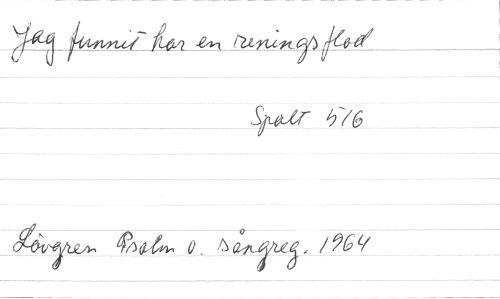 Jag funnit har en reningsflod
Spalt 516
Lövgren Psalm o. sångreg. 1964